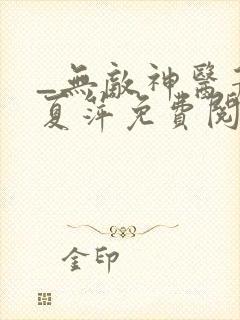 _無敵神醫
夏萍免費閱
金印